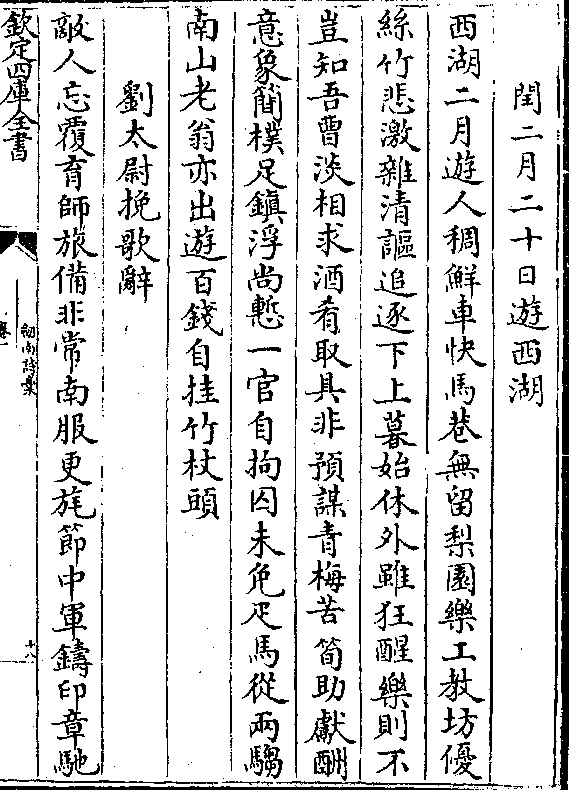 閏二月二十日遊西湖
西湖二月遊人稠鮮車快馬巷無留梨園樂工教坊優
絲竹悲激雜清謳追逐下上暮始休外雖狂醒樂則不
豈知吾曹淡相求酒肴取具非預謀青梅苦筍助獻酬
意象簡樸足鎮浮尚慙一官自拘囚未免疋馬從兩騶
南山老翁亦出遊百錢自挂竹杖頭
劉太尉挽歌辭
敵人忘覆育師旅備非常南服更旄節中軍鑄印章馳
欽定四庫全書
劍南詩稾
卷一
十八